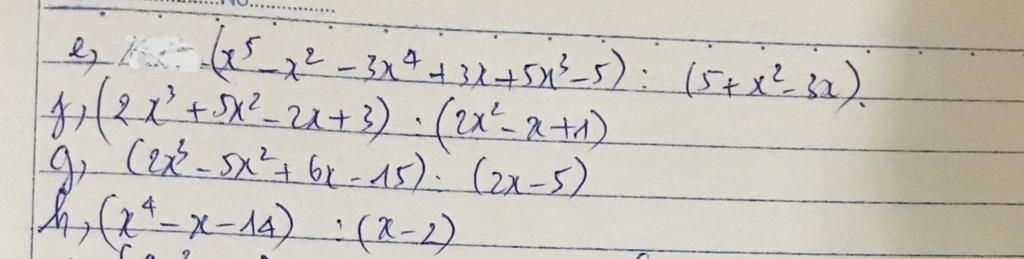 No.
e, (x⁵ - x² - 3x⁴ + 3x + 5x³ - 5) : (5 + x² - 3x).
f, (2x³ + 5x² - 2x + 3) : (2x² - x + 1)
g, (2x³ - 5x² + 6x - 15) : (2x - 5)
h, (x⁴ - x - 14) : (x - 2)